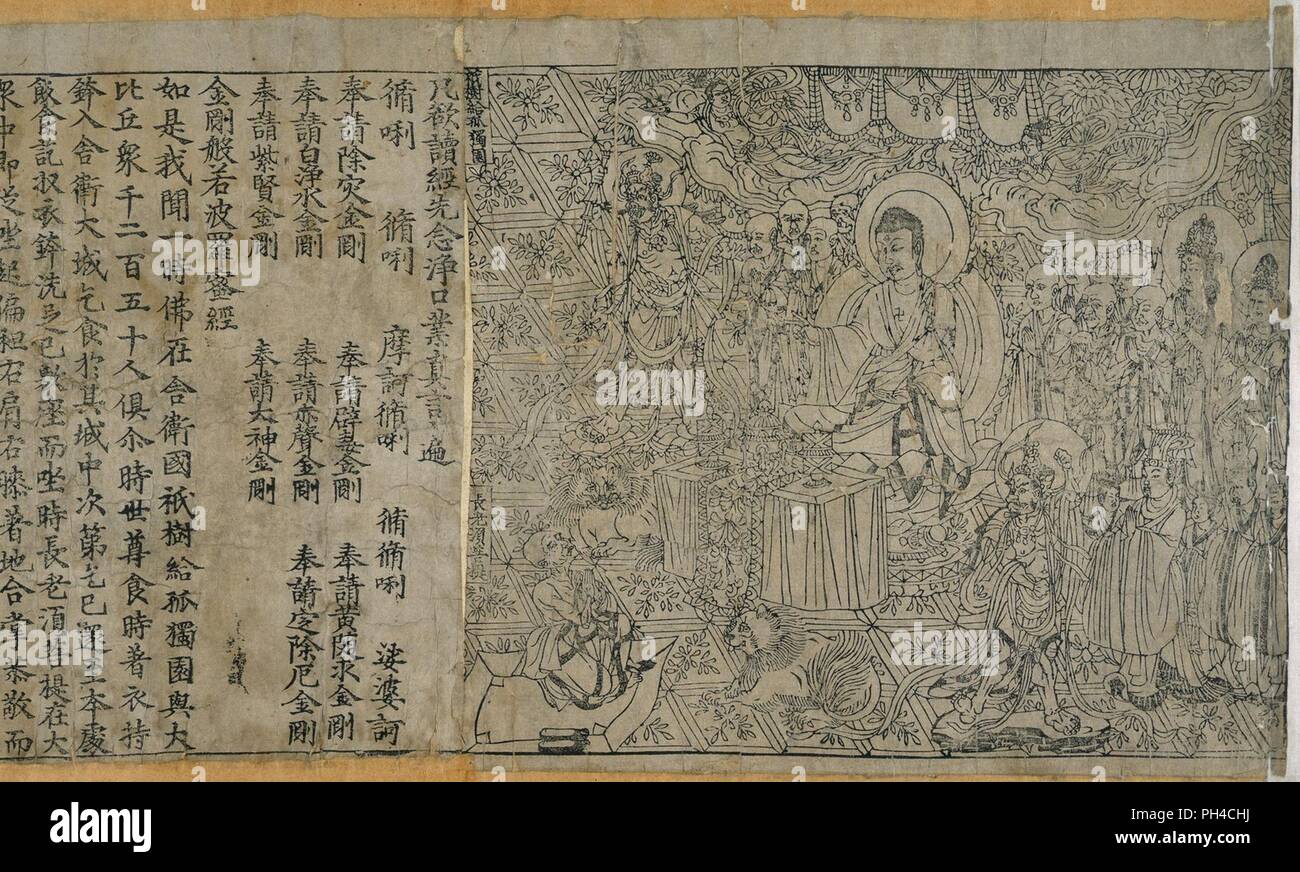 凡欲讀經先念淨口業真言遍
脩唎 脩唎 摩訶脩唎 脩脩唎 娑婆訶
奉請除灾金剛 奉請辟毒金剛 奉請黃隨求金剛
奉請白淨水金剛 奉請赤聲金剛 奉請定除厄金剛
奉請紫賢金剛 奉請大神金剛
金剛般若波羅蜜經
如是我聞一時佛在舍衛國祇樹給孤獨園與大
比丘眾千二百五十人俱尒時世尊食時著衣持
鉢入舍衛大城乞食於其城中次第乞已還至本處
飯食訖收衣鉢洗足已敷座而坐時長老須菩提在大
眾中即從坐起偏袒右肩右膝著地合掌恭敬而
祇樹給孤獨園
長老須菩提
alamy
alamy
alamy stock photo
Image ID: PH4CHJ
www.alamy.com